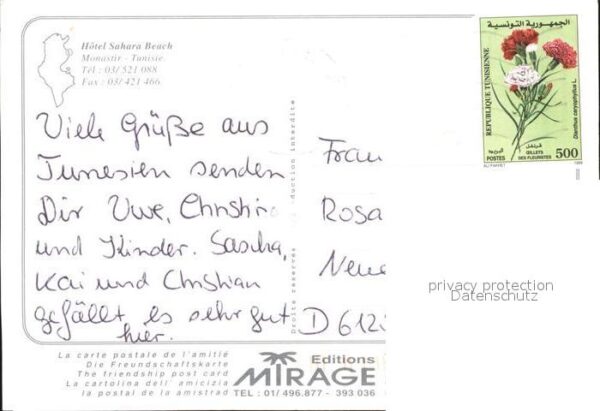 Hôtel Sahara Beach
Monastir - Tunisie.
Tél : 03/ 521 088
Fax : 03/ 421 466
Viele Grüße aus
Tunesien senden
Dir Uwe, Christin
und Kinder. Sascha,
Kai und Christian
gefällt es sehr gut
hier.
Droits réservés
duction interdite
Frau
Rosa
Neue
D 612
الجمهورية التونسية
REPUBLIQUE TUNISIENNE
Dianthus caryophyllus L.
قرنفل
البريد
POSTES
ŒILLETS
DES FLEURISTES
500
1999
privacy protection
Datenschutz
La carte postale de l'amitié
Die Freundschaftskarte
The friendship post card
La cartolina dell' amicizia
la postal de la amistrad
Editions
MIRAGE
TEL : 01/ 496.877 - 393 036